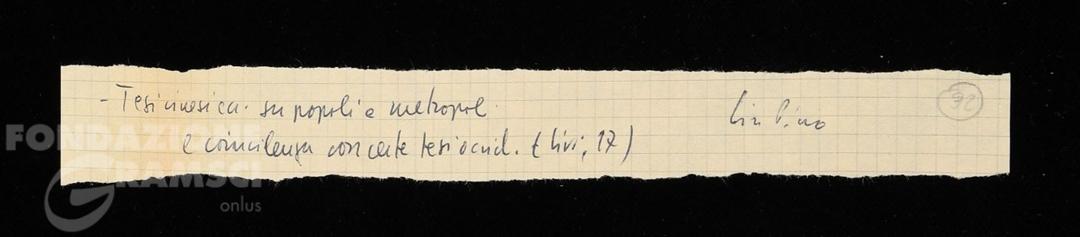 - Tesi cinesica su popoli e metropol.
Lin Piao
92
e coincidenza con certe tesi occid. (Livi, 17)
FONDAZIONE
GRAMSCI
onlus